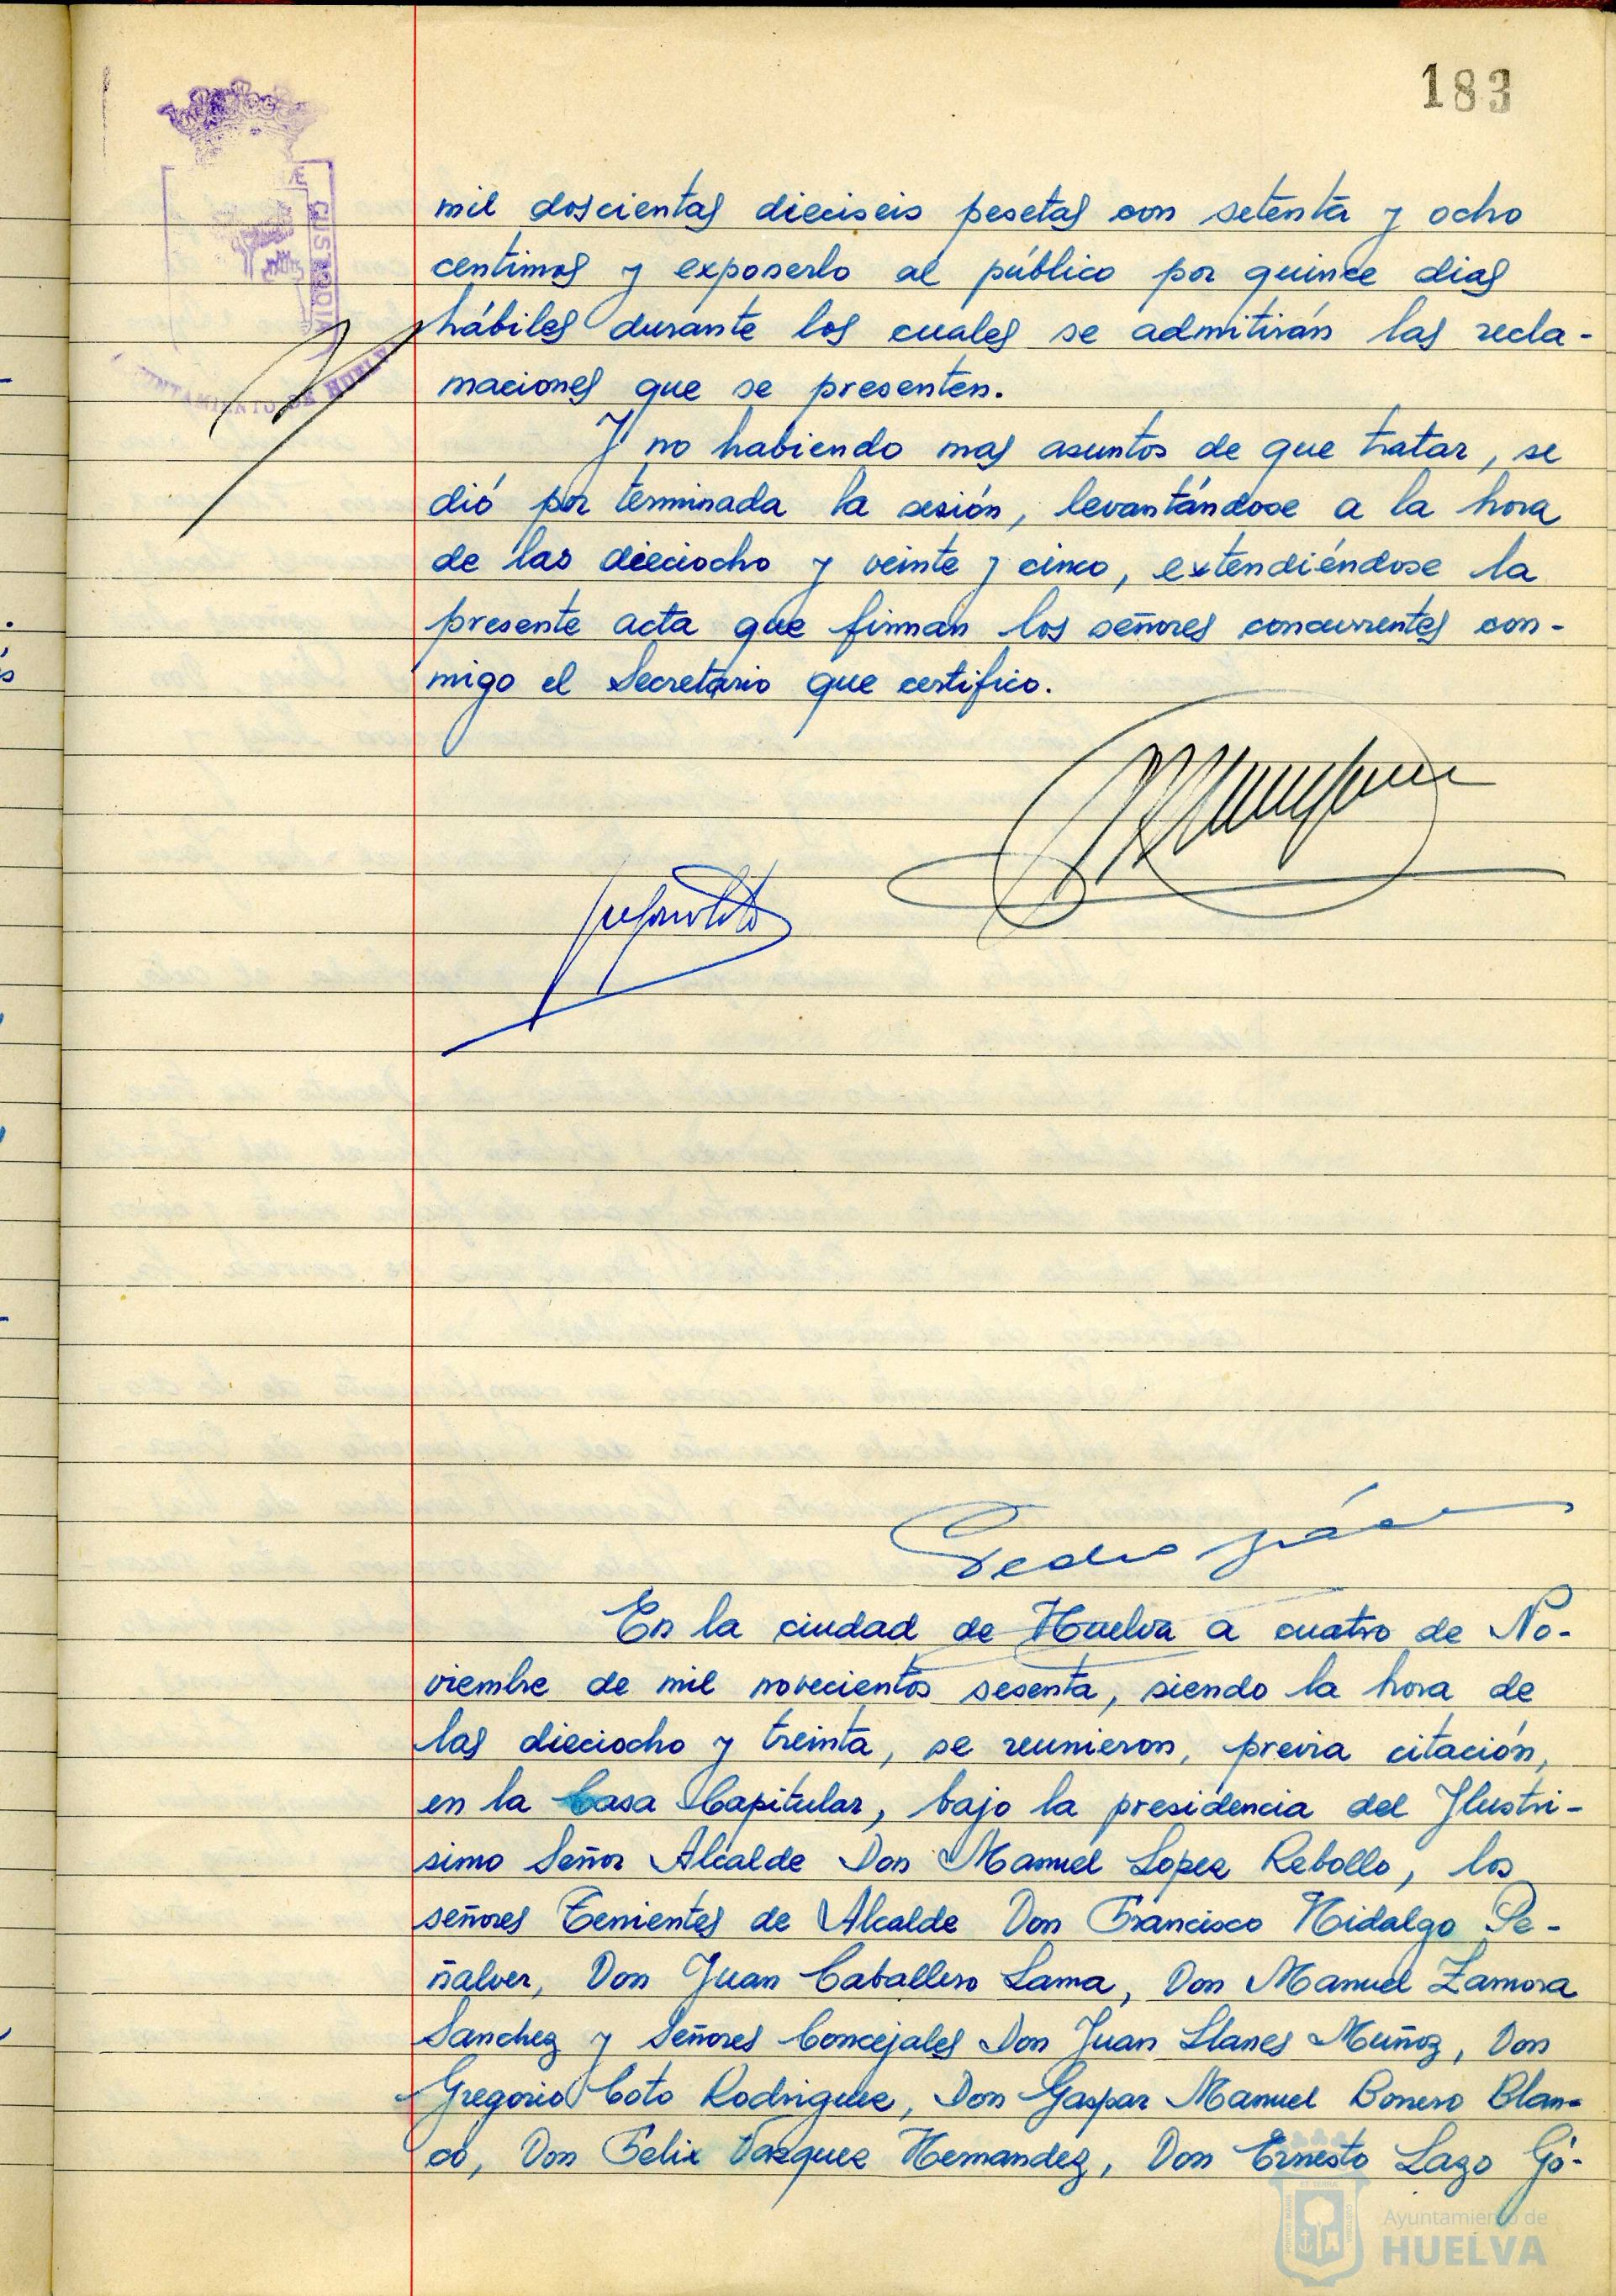 183
CUSTODIA
AYUNTAMIENTO DE HUELVA
mil doscientas dieciseis pesetas con setenta y ocho
centimos y exponerlo al público por quince dias
hábiles durante los cuales se admitirán las recla-
maciones que se presenten.
Y no habiendo mas asuntos de que tratar, se
dió por terminada la sesión, levantándose a la hora
de las dieciocho y veinte y cinco, extendiéndose la
presente acta que firman los señores concurrentes con-
migo el Secretario que certifico.
Pedro
En la ciudad de Huelva a cuatro de No-
viembre de mil novecientos sesenta, siendo la hora de
las dieciocho y treinta, se reunieron, previa citación,
en la Casa Capitular, bajo la presidencia del Ilustri-
simo Señor Alcalde Don Manuel Lopez Rebollo, los
señores Tenientes de Alcalde Don Francisco Hidalgo Pe-
ñalver, Don Juan Caballero Lama, Don Manuel Zamora
Sanchez y Señores Concejales Don Juan Llanes Muñoz, Don
Gregorio Coto Rodriguez, Don Gaspar Manuel Borrero Blan-
co, Don Felix Vazquez Hernandez, Don Ernesto Lazo Gó-
Ayuntamiento de
HUELVA